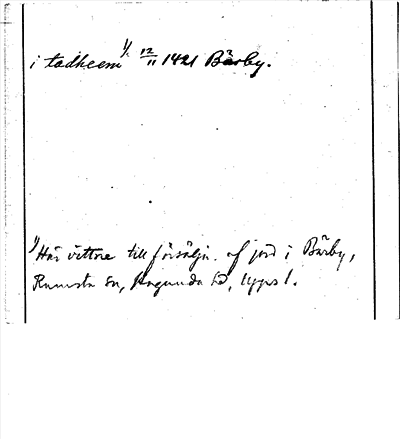 i tadheem 1/. 12/11 1421 Bärby.
1/ Här vittne till försäljn. af jord i Bärby,
Ramsta sn, Hagunda hd, Uppsl.